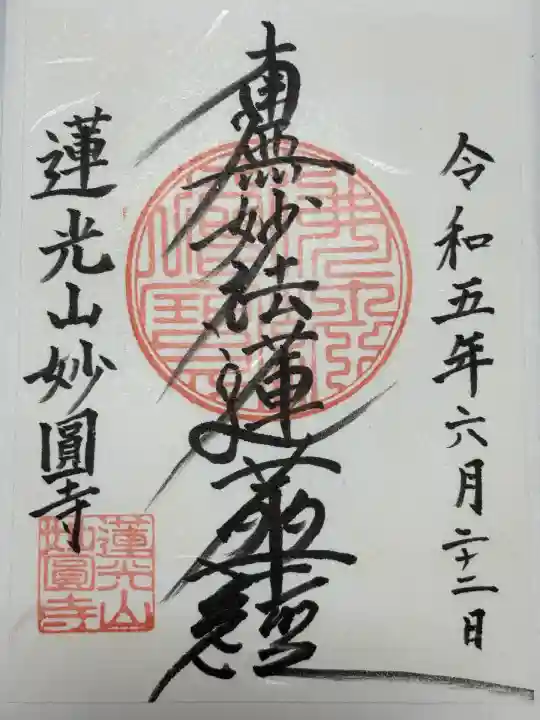 令和五年六月二十二日
南無妙法蓮華経
蓮光山妙圓寺
蓮光山
妙圓寺